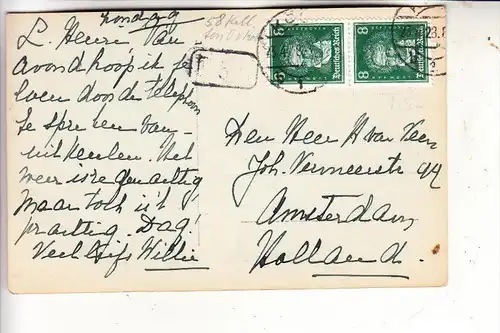 Zondag
L. Henri, Van
avond hoop ik je
weer door de telefoon
te spreken van-
uit Keulen. Het
weer is regenachtig
maar toch is 't
prachtig. Dag!
Veel liefs Willie
8 Deutsches Reich 8 Deutsches Reich
23.8
T
Den Heer H van Veen
Joh. Vermeerstr
Amsterdam
Holland.